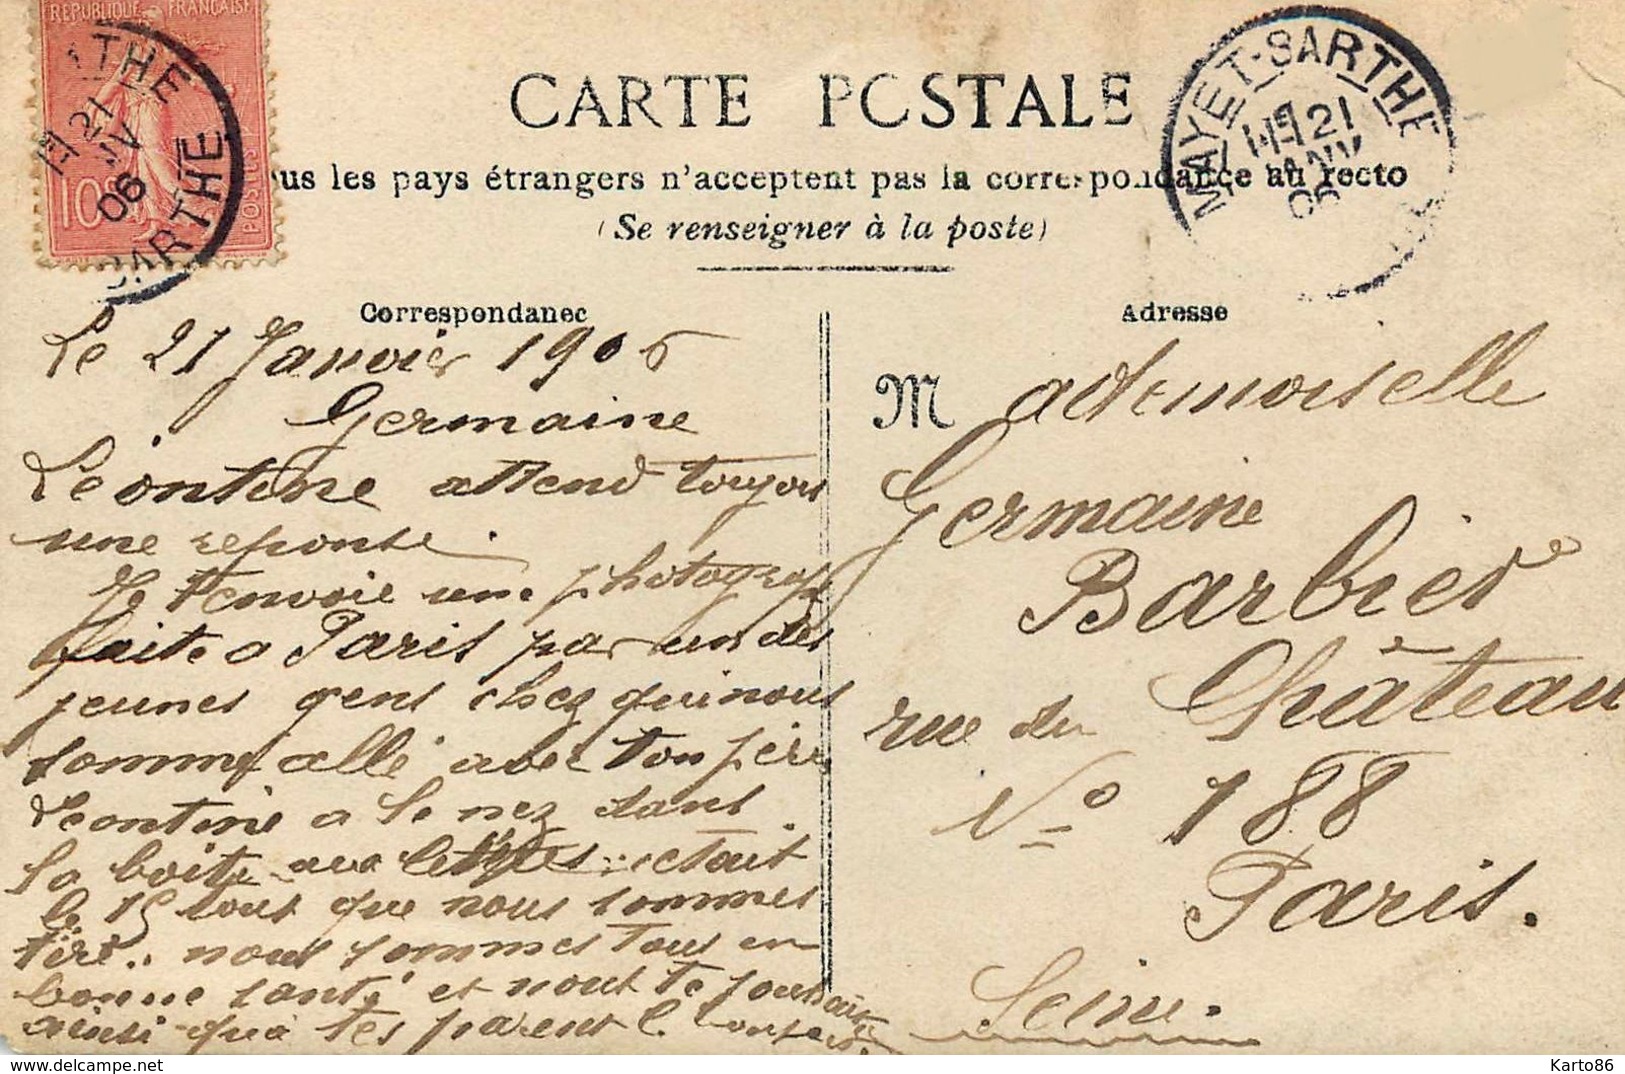 REPUBLIQUE FRANÇAISE
10c
POSTES
SARTHE
21
06
CARTE POSTALE
MAYET-SARTHE
21
JANV
06
us les pays étrangers n'acceptent pas la correspondance au recto
(Se renseigner à la poste)
Correspondanec
Adresse
Le 21 Janvier 1906
Germaine
Léontine attend toujours
une reponse.
Je t'envoie une photograp
faite a Paris par un des
jeunes gens chez qui nous
sommes allé avec ton père
Leontine a le nez dans
la boite aux lettres. cetait
le 15 tout que nous sommes
tiré.. nous sommes tous en
bonne santé et nous te souhait
ainsi que tes parent
Mademoiselle
Germaine
Barbier
rue du Château
No 188
Paris.
Seine.
Karto86